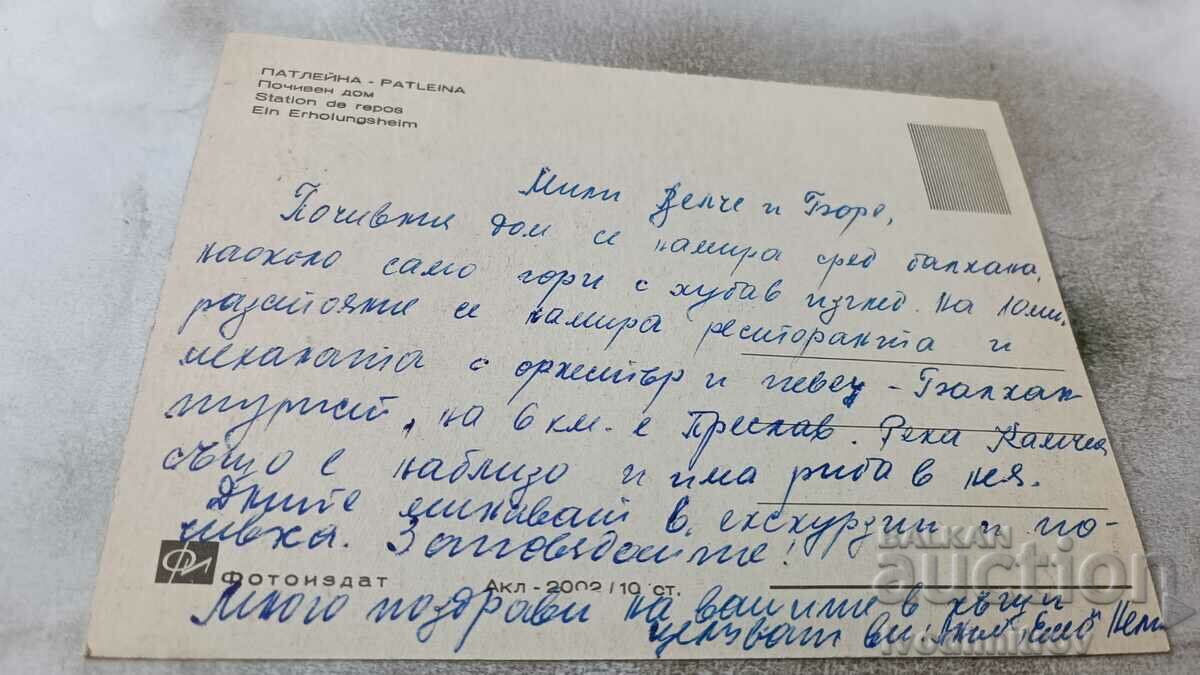 ПАТЛЕЙНА - PATLEINA
Почивен дом
Station de repos
Ein Erholungsheim
Мили Велче и Боре,
Почивния дом се намира сред балкана,
наоколо само гори с хубав изглед. На 10 ми.
разстояние се намира ресторанта и
механата с оркестър и певец - Балкан
турист, на 6 км. е Преслав. Река Камчия
също е наблизо и има риба в нея.
Дните минават в екскурзии и по-
чивка. Заповядайте!
Фотоиздат
Акл - 2002/10 ст.
Много поздрави на вашите в къщи
целуват ви:
BALKAN
auction